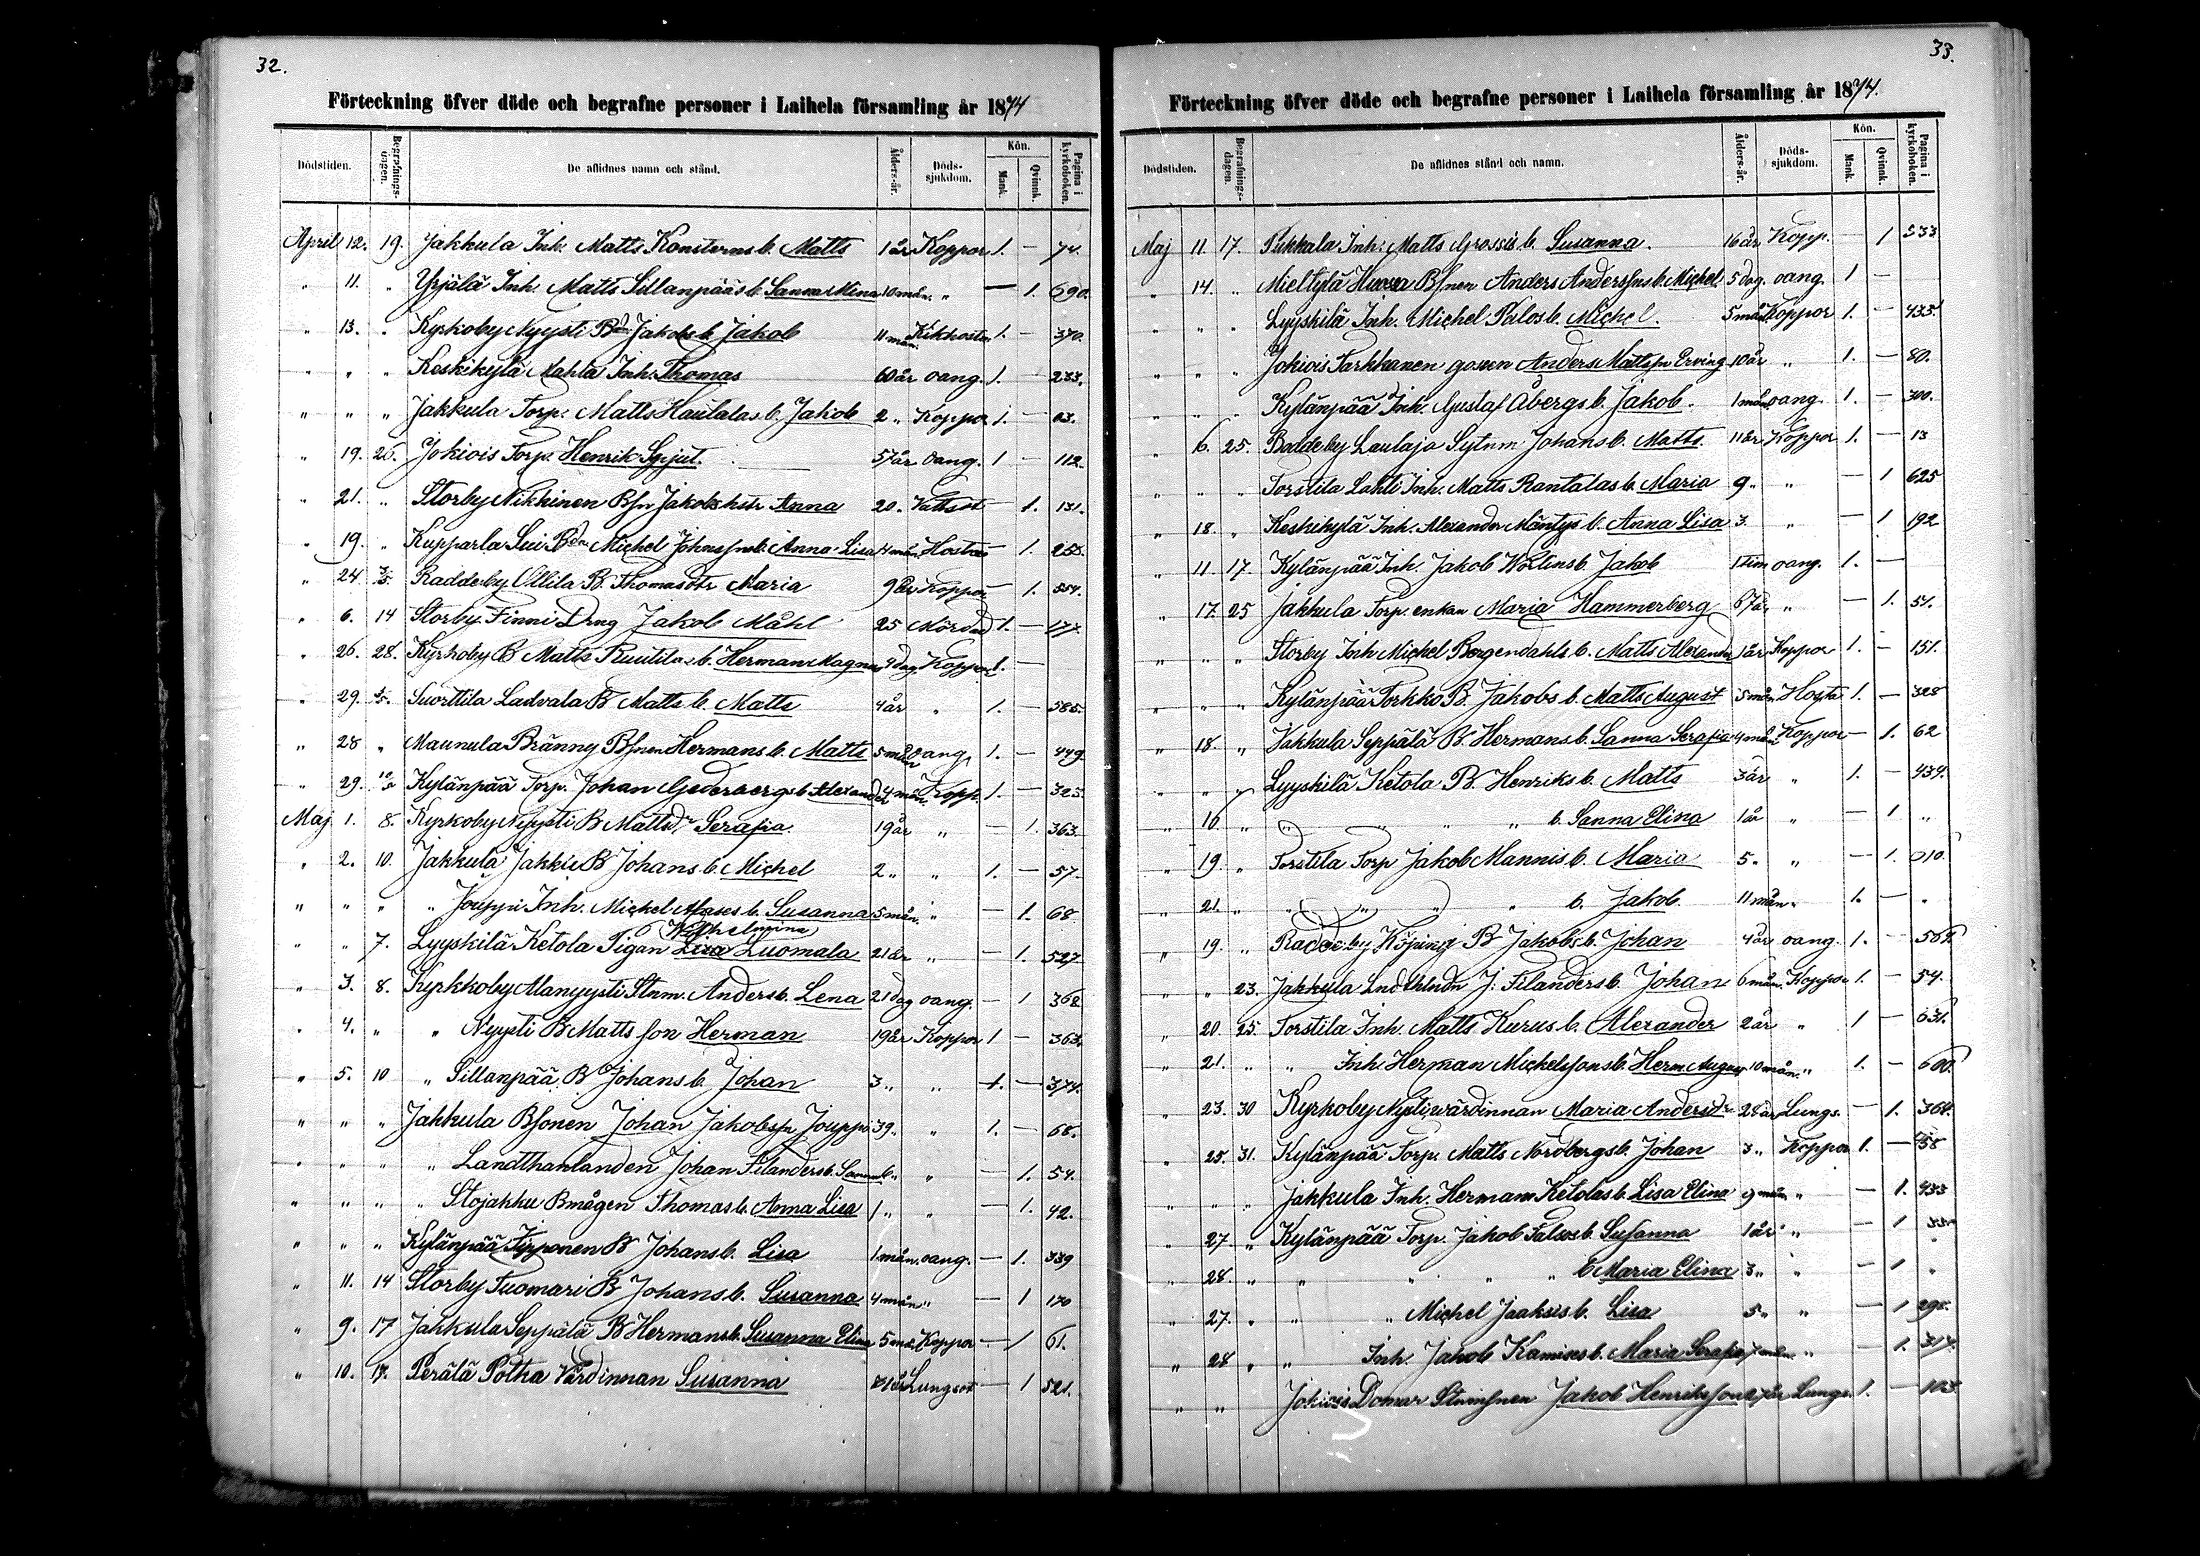 32.
Förteckning öfver döde och begrafne personer i Laihela församling år 1874
Dödstiden. Begrafnings-dagen. De aflidnes namn och stånd. Ålders-år. Döds-sjukdom. Kön. Mank. Qvinnk. Pagina i kyrkoboken.
April 12. 19. Jakkula Inh. Matts Konsterns b. Matts 1 år Koppor 1. — 74.
" 11. " Yrjälä Inh. Matts Sillanpääs b. Sanna Mina 10 mån. " — 1. 690.
" 13. " Kyrkoby Nyysti Bdn Jakobs b. Jakob 11 mån. Kikhosta 1. — 370.
" " " Keskikylä Mahla Inh. Thomas 60 år oang. 1. — 233.
" " " Jakkula Torp. Matts Hautalas b. Jakob 2 " Koppor 1. — 63.
" 19. 26. Jokiois Torp. Henrik Spjut. 57 år oang. 1 — 112.
" 21. " Storby Nikkinen Bsn Jakobs hstr Anna 20. Vattsot — 1. 131.
" 19. " Kupparla Sui Bdn Michel Johnssns b. Anna Lisa 4 mån. Hosta — 1. 255.
" 24. 3/5 Raddeby Ollila B. Thomasdtr Maria 9 år Koppor — 1. 554.
" 6. 14 Storby Finni Drng Jakob Måhl 25 Mördad 1. — 177.
" 26. 28. Kyrkoby B Matts Ruutilas b. Herman Magnus 4 dag. Koppor 1. —
" 29. 3/5. Suorttila Ladvala B Matts b. Matts 4 år " 1. — 385.
" 28 " Maunula Bränny Bsnen Hermans b. Matts 5 mån oang. 1. — 449.
" 29. 10/5 Kylänpää Torp. Johan Gederbergs b. Alexander 4 mån. Kopp. 1. — 325.
Maj 1. 8. Kyrkoby Nyysti B Mattsdr Serafia 19 år " — 1. 363.
" 2. 10. Jakkula Jakku B Johans b. Michel 2 " " 1. — 57.
" " " " Jouppi Inh. Michel Mases b. Susanna 5 mån. " — 1. 68.
Wilhelmina
" " 7. Lyyskilä Ketola Pigan Lisa Luomala 21 år " — 1. 527
" 3. 8. Kyrkkoby Alanyysti Stnm. Anders b. Lena 21 dag oang. — 1 368.
" 4. " " Nyysti B Matts son Herman 19 år Koppor 1 — 363.
" 5. 10 " Sillanpää B Johans b. Johan 3 " " 1. — 374.
" " " Jakkula Bsonen Johan Jakobssn Jouppi 39. " 1. — 68.
" " " " Landthanlanden Johan Filanders b. Sanna 6 " " — 1. 54.
" " " " Stojakku Bmågen Thomas b. Anna Lisa 1 " " — 1. 42.
" " " Kylänpää Tipponen B Johans b. Lisa 1 mån. oang. — 1. 339
" 11. 14 Storby Tuomari B Johans b. Susanna 4 mån " — 1 170
" 9. 17 Jakkula Seppälä B Hermans b. Susanna Elina 5 mån. Koppor — 1 61.
" 10. 17. Perälä Potka Värdinnan Susanna år Lungsot — 1 521.
33.
Förteckning öfver döde och begrafne personer i Laihela församling år 1874.
Dödstiden. Begrafnings-dagen. De aflidnes stånd och namn. Ålders-år. Döds-sjukdom. Kön. Mank. Qvinnk. Pagina i kyrkoboken.
Maj 11. 17. Pukkala Inh. Matts Grossis b. Susanna. 16 år Kopp. — 1 533
" 14. " Mieltylä Bsnen Anders Anderssns b. Michel. 5 dag. oang. 1 —
" " " Lyyskilä Inh. Michel Palos b. Michel. 5 mån. Koppor 1. — 435.
" " " Jokiois Tarkkanen gossen Anders Mattssn Erving 10 år " 1. — 80.
" " " Kylänpää Inh. Gustaf Åbergs b. Jakob. 1 mån oang. 1. — 300.
" 6. 25. Raddeby Laulaja Sytnm Johans b. Matts. 11 år Koppor 1. — 13
" " " Torstila Lahti Inh. Matts Rantalas b. Maria 9 " " — 1 625
" 18. " Keskikylä Inh. Alexander Mäntys b. Anna Lisa 3. " — 1. 192
" 11. 17. Kylänpää Inh. Jakob Wörlins b. Jakob 1 tim oang. 1. —
" 17. 25 Jakkula Torp. enkan Maria Hammerberg 67 år " — 1. 51.
" " " Storby Inh Michel Bergendahls b. Matts Alexander 1 år Koppor 1. — 151.
" " " Kylänpää Torkko B. Jakobs b. Matts August 5 mån. Hosta 1. — 328
" 18. " Jakkula Seppälä B. Hermans b. Sanna Serafia 4 mån Koppor — 1. 62
" " " Lyyskilä Ketola B. Henriks b. Matts 3 år " 1. — 434.
" 16 " " " " " b. Sanna Elina 1 år " — 1 "
" 19. " Torstila Torp Jakob Mannis b. Maria 5. " — 1. 610.
" 21. " " " " " b. Jakob 11 mån. " 1. — "
" 19. " Raddeby Köping B Jakobs b. Johan 4 år oang. 1. — 562.
" " 23. Jakkula Lndthlndn J. Filanders b. Johan 6 mån. Koppor 1. — 54.
" 20. 25. Torstila Inh. Matts Kurus b. Alexander 2 år " 1 — 631.
" 21. " " Inh. Herman Michelssons b. Herm. August 10 mån. " 1. — 600.
" 23. 30 Kyrkoby Nysti wärdinnan Maria Andersdr 28 år Lungs. — 1. 364.
" 25. 31. Kylänpää Torp. Matts Nordbergs b. Johan 3 " Koppor 1. — 258
" " " Jakkula Inh. Herman Ketolas b. Lisa Elina 9 mån " — 1. 433
" 27. " Kylänpää Torp. Jakob Talsos b. Susanna 1 år " — 1
" 28. " " " " " b Maria Elina 3 " " — 1 "
" 27. " " " Michel Jaaksis b. Lisa 5 " " — 1 298.
" 28 " " Inh. Jakob Kamises b. Maria Serafia 7 mån. " — 1. 317.
" " Jokiois Domar Stnmsnen Jakob Henriksson år Lungs. 1. — 103